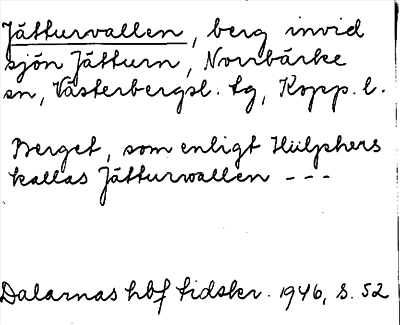 Jätturvallen, berg invid
sjön Jätturn, Norrbärke
sn, Västerbergsl. tg, Kopp. l.
Berget, som enligt Hülphers
kallas Jätturwallen - - -
Dalarnas hbf tidskr. 1946, s. 52